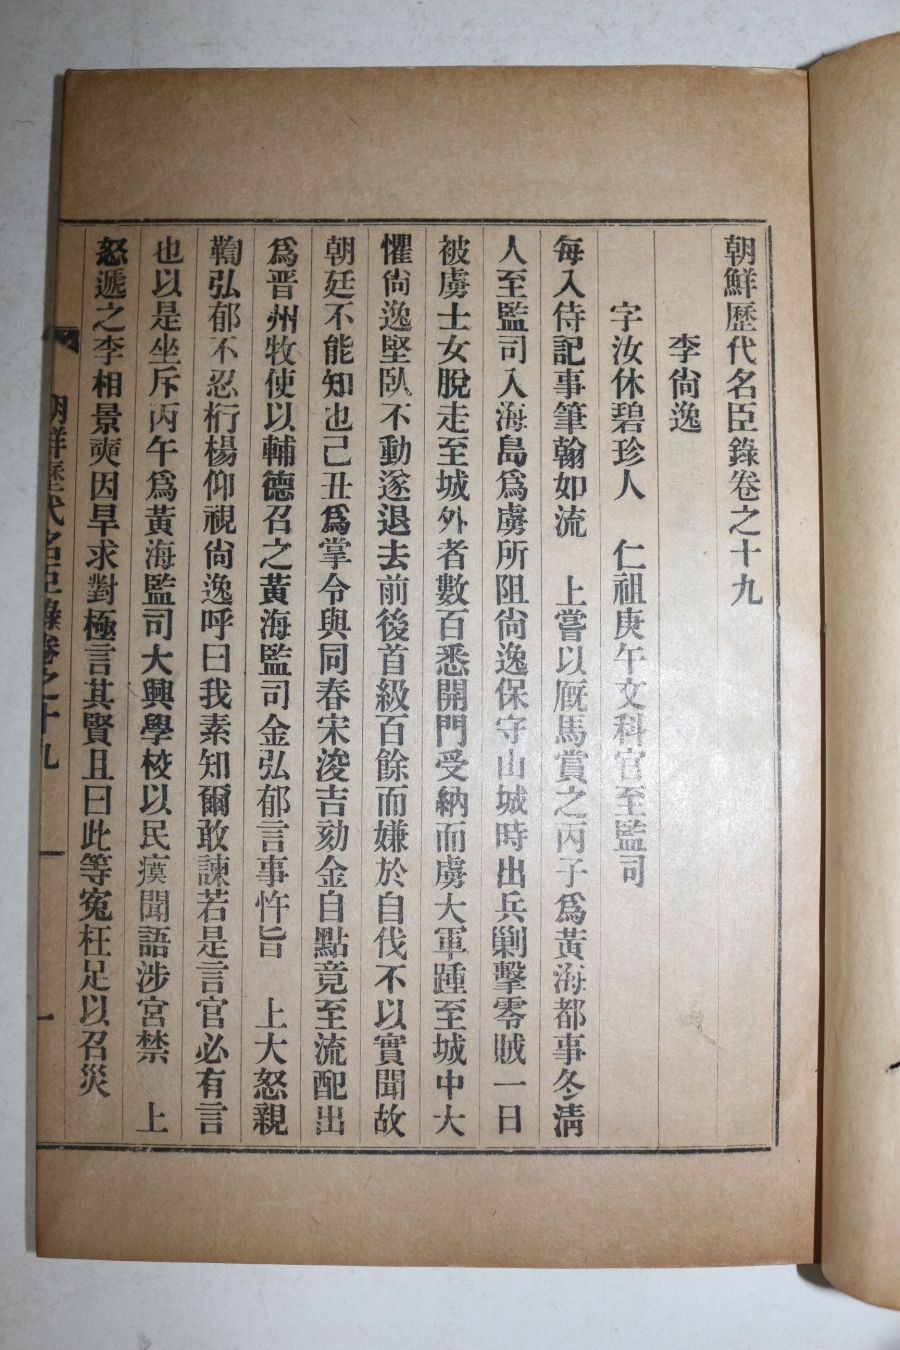 朝鮮歷代名臣錄卷之十九
李尙逸
字汝休碧珍人　仁祖庚午文科官至監司
每入侍記事筆翰如流　上嘗以厩馬賞之丙子爲黃海都事冬淸
人至監司入海島爲虜所阻尙逸保守山城時出兵剿擊零賊一日
被虜士女脫走至城外者數百悉開門受納而虜大軍踵至城中大
懼尙逸堅臥不動遂退去前後首級百餘而嫌於自伐不以實聞故
朝廷不能知也己丑爲掌令與同春宋浚吉劾金自點竟至流配出
爲晋州牧使以輔德召之黃海監司金弘郁言事忤旨　上大怒親
鞫弘郁不忍桁楊仰視尙逸呼曰我素知爾敢諫若是言官必有言
也以是坐斥丙午爲黃海監司大興學校以民瘼聞語涉宮禁　上
怒遞之李相景奭因旱求對極言其賢且曰此等寃枉足以召災
朝鮮歷代名臣錄卷之十九
一